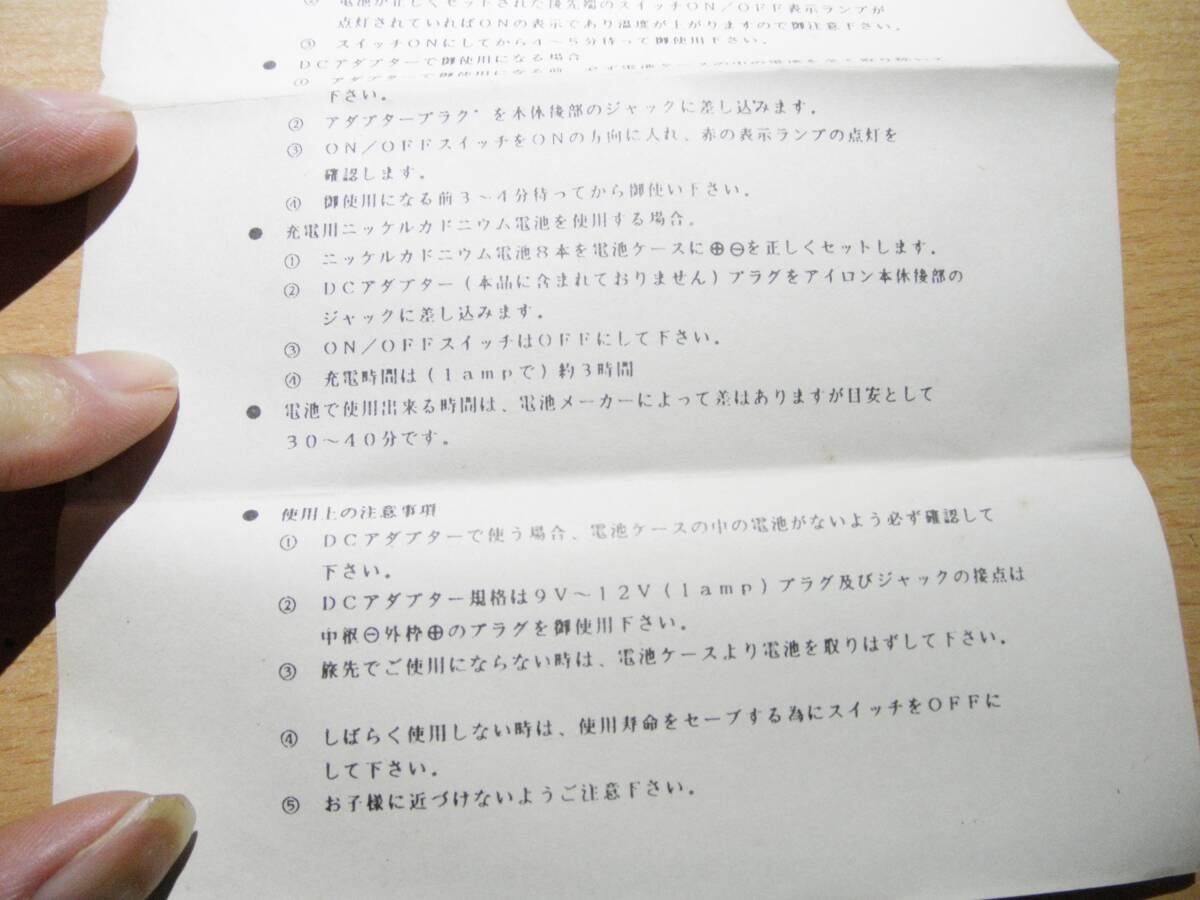 ② 電池が正しくセットされた後先端のスイッチON/OFF表示ランプが
点灯されていればONの表示であり温度が上がりますので御注意下さい。
③ スイッチONにしてから4〜5分待って御使用下さい。
● DCアダプターで御使用になる場合
① アダプターで御使用になる前、必ず電池ケースの中の電池を
下さい。
② アダプタープラグを本体後部のジャックに差し込みます。
③ ON/OFFスイッチをONの方向に入れ、赤の表示ランプの点灯を
確認します。
④ 御使用になる前3〜4分待ってから御使い下さい。
● 充電用ニッケルカドニウム電池を使用する場合。
① ニッケルカドニウム電池8本を電池ケースに⊕⊖を正しくセットします。
② DCアダプター(本品に含まれておりません)プラグをアイロン本体後部の
ジャックに差し込みます。
③ ON/OFFスイッチはOFFにして下さい。
④ 充電時間は(1ampで)約3時間
● 電池で使用出来る時間は、電池メーカーによって差はありますが目安として
30〜40分です。
● 使用上の注意事項
① DCアダプターで使う場合、電池ケースの中の電池がないよう必ず確認して
下さい。
② DCアダプター規格は9V〜12V(1amp)プラグ及びジャックの接点は
中枢⊖外枠⊕のプラグを御使用下さい。
③ 旅先でご使用にならない時は、電池ケースより電池を取りはずして下さい。
④ しばらく使用しない時は、使用寿命をセーブする為にスイッチをOFFに
して下さい。
⑤ お子様に近づけないようご注意下さい。